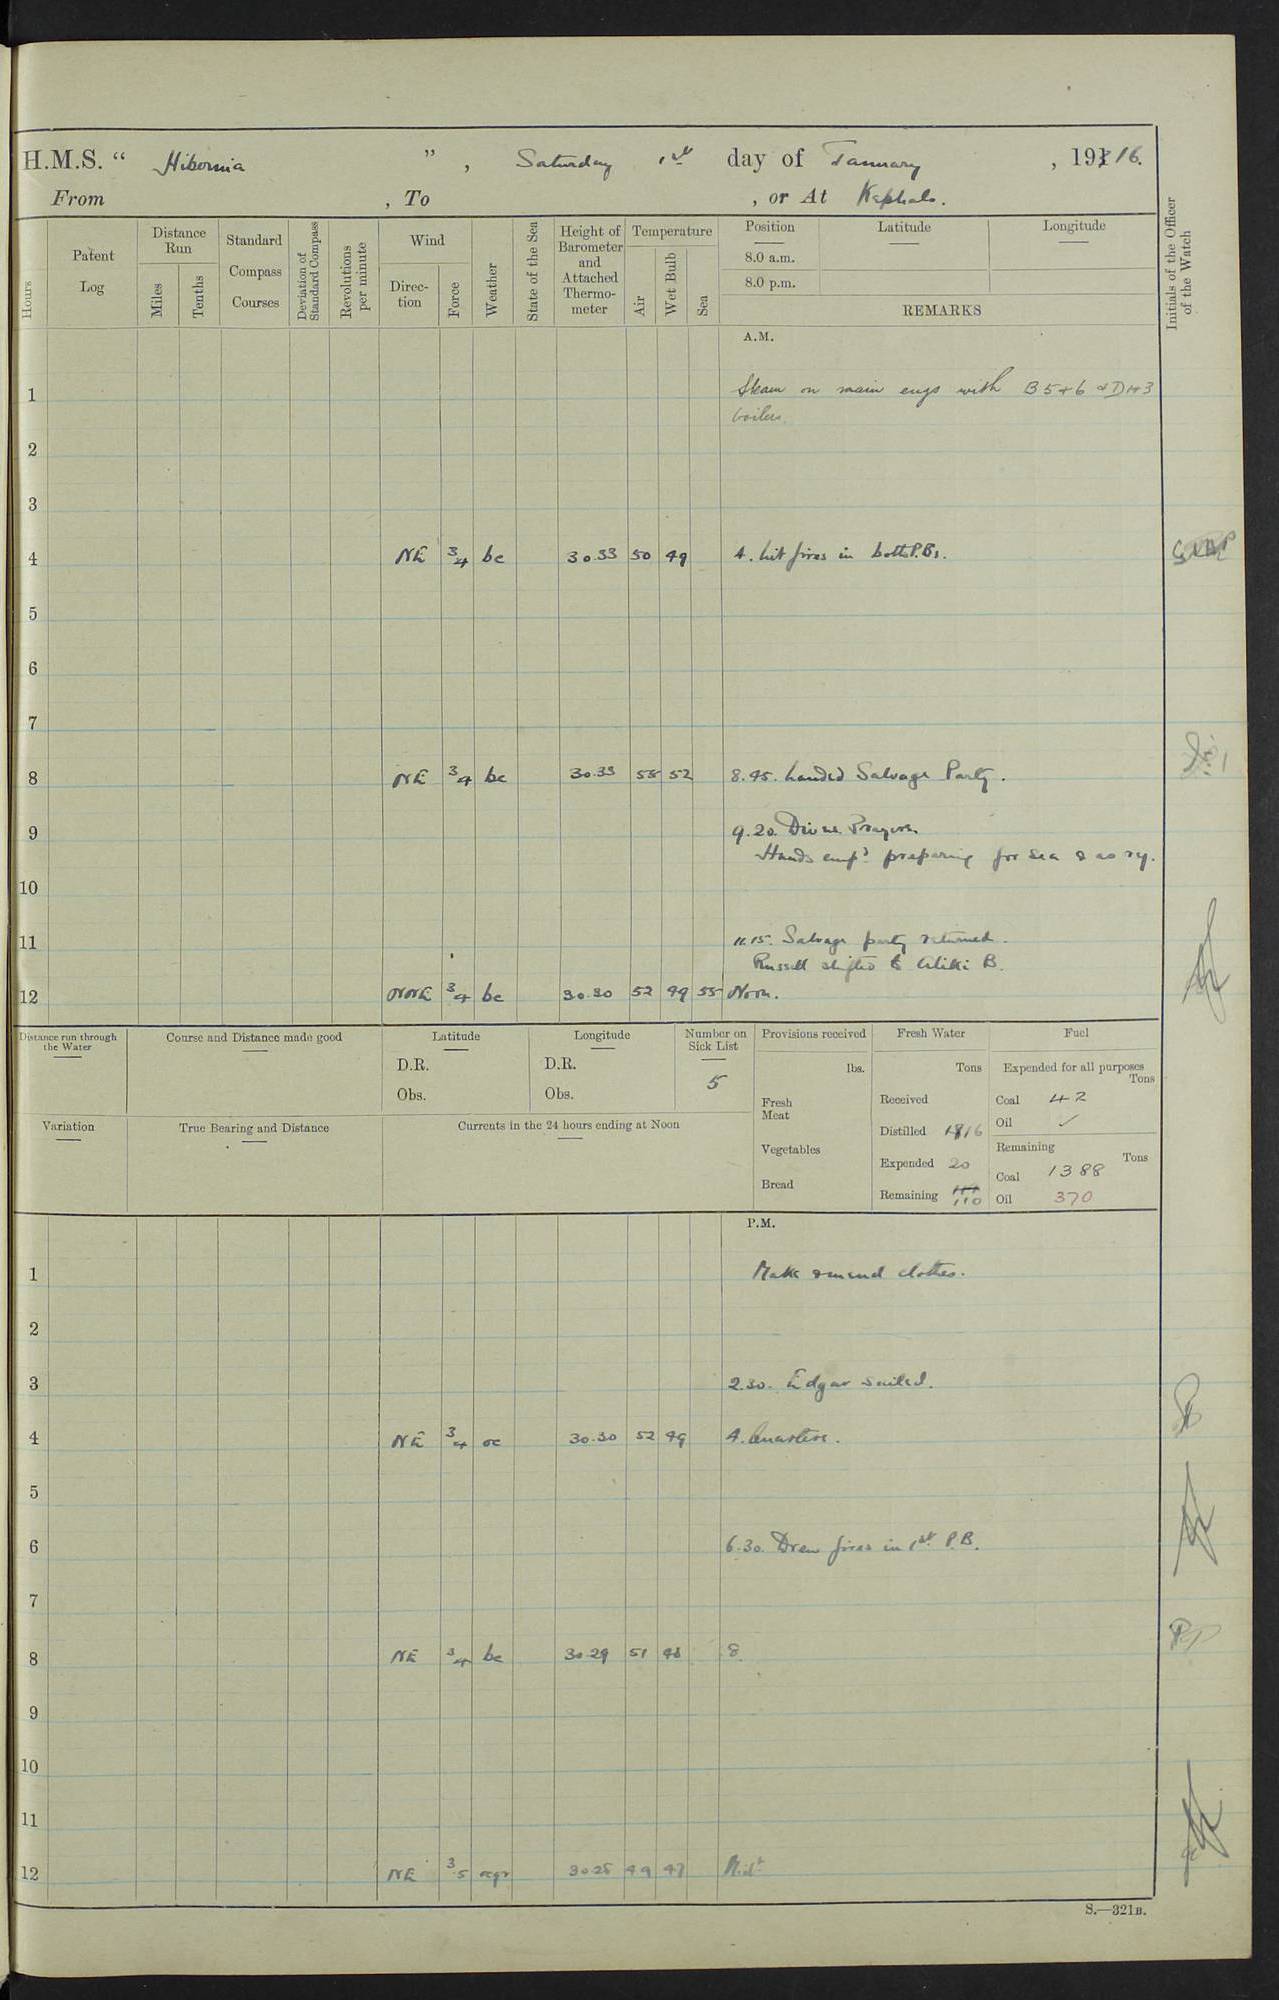 H.M.S. “ Hibernia ”, Saturday 1st day of January, 1916.
From , To , or At Kephalo.
Hours
Patent Log
Distance Run
Miles
Tenths
Standard Compass Courses
Deviation of Standard Compass
Revolutions per minute
Wind
Direction
Force
Weather
State of the Sea
Height of Barometer and Attached Thermometer
Temperature
Air
Wet Bulb
Sea
Position
8.0 a.m.
8.0 p.m.
Latitude
Longitude
REMARKS
Initials of the Officer of the Watch
A.M.
1 Steam on main engs with B 5+6 + D 1+3
boilers.
2
3
4 NE 3/4 bc 30.33 50 49 4. Lit fires in both P.Bs.
5
6
7
8 NE 3/4 bc 30.33 55 52 8.45. Landed Salvage Party.
9 9.20. Divine Prayers.
Hands empd preparing for sea & as rq.
10
11 11.15. Salvage party returned.
Russell shifted to Aliki B.
12 NNE 3/4 bc 30.30 52 49 55 Noon.
Distance run through the Water
Course and Distance made good
Latitude
D.R.
Obs.
Longitude
D.R.
Obs.
Number on Sick List
5
Provisions received
lbs.
Fresh Meat
Vegetables
Bread
Fresh Water
Tons
Received
Distilled 16
Expended 20
Remaining 110
Fuel
Expended for all purposes
Tons
Coal 42
Oil ✓
Remaining
Tons
Coal 1388
Oil 370
Variation
True Bearing and Distance
Currents in the 24 hours ending at Noon
P.M.
1 Make & mend clothes.
2
3 2.30. Edgar sailed.
4 NE 3/4 oc 30.30 52 49 4. Quarters.
5
6 6.30. Drew fires in 1st P.B.
7
8 NE 3/4 bc 30.29 51 48 8.
9
10
11
12 NE 3/5 ocqr 30.28 49 47 Midt
S.—321B.